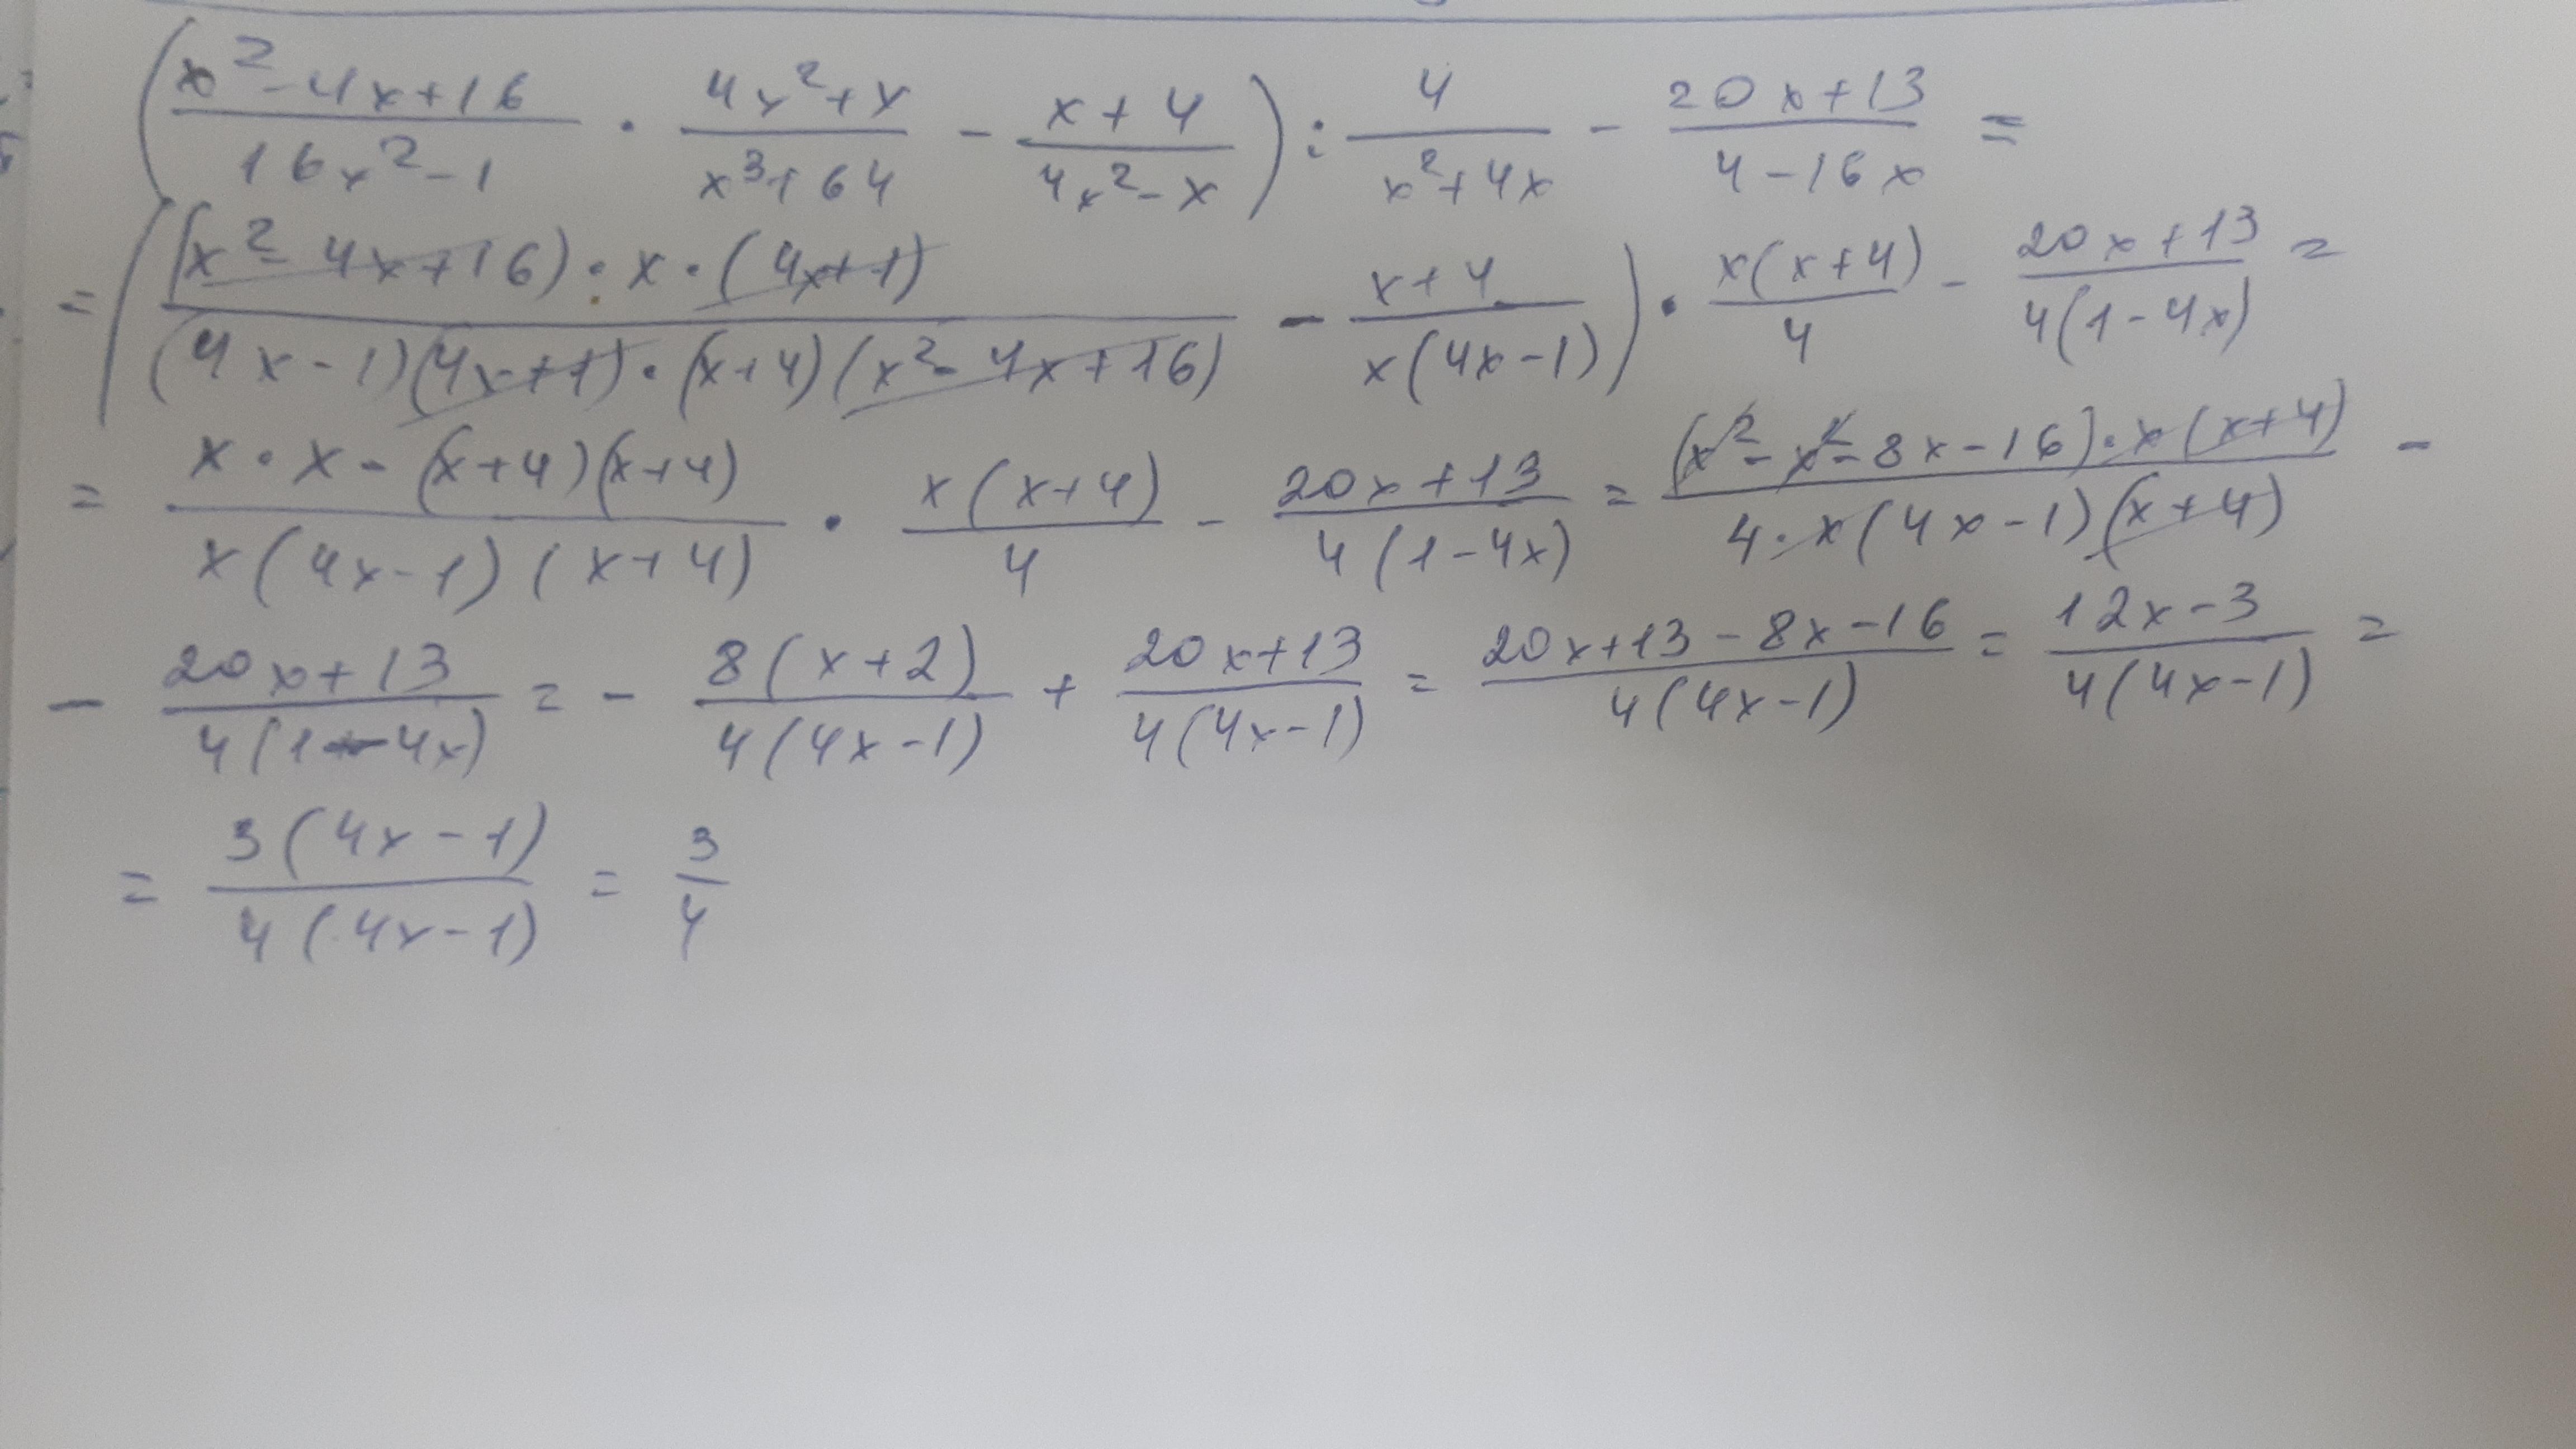 (x²-4x+16/16x²-1 · 4x²+x/x³+64 - x+4/4x²-x) : 4/x²+4x - 20x+13/4-16x =
= ((x²-4x+16)·x·(4x+1)/(4x-1)(4x+1)·(x+4)(x²-4x+16) - x+4/x(4x-1)) · x(x+4)/4 - 20x+13/4(1-4x) =
= x·x-(x+4)(x+4)/x(4x-1)(x+4) · x(x+4)/4 - 20x+13/4(1-4x) = (x²-x²-8x-16)·x(x+4)/4·x(4x-1)(x+4) -
- 20x+13/4(1-4x) = - 8(x+2)/4(4x-1) + 20x+13/4(4x-1) = 20x+13-8x-16/4(4x-1) = 12x-3/4(4x-1) =
= 3(4x-1)/4(4x-1) = 3/4